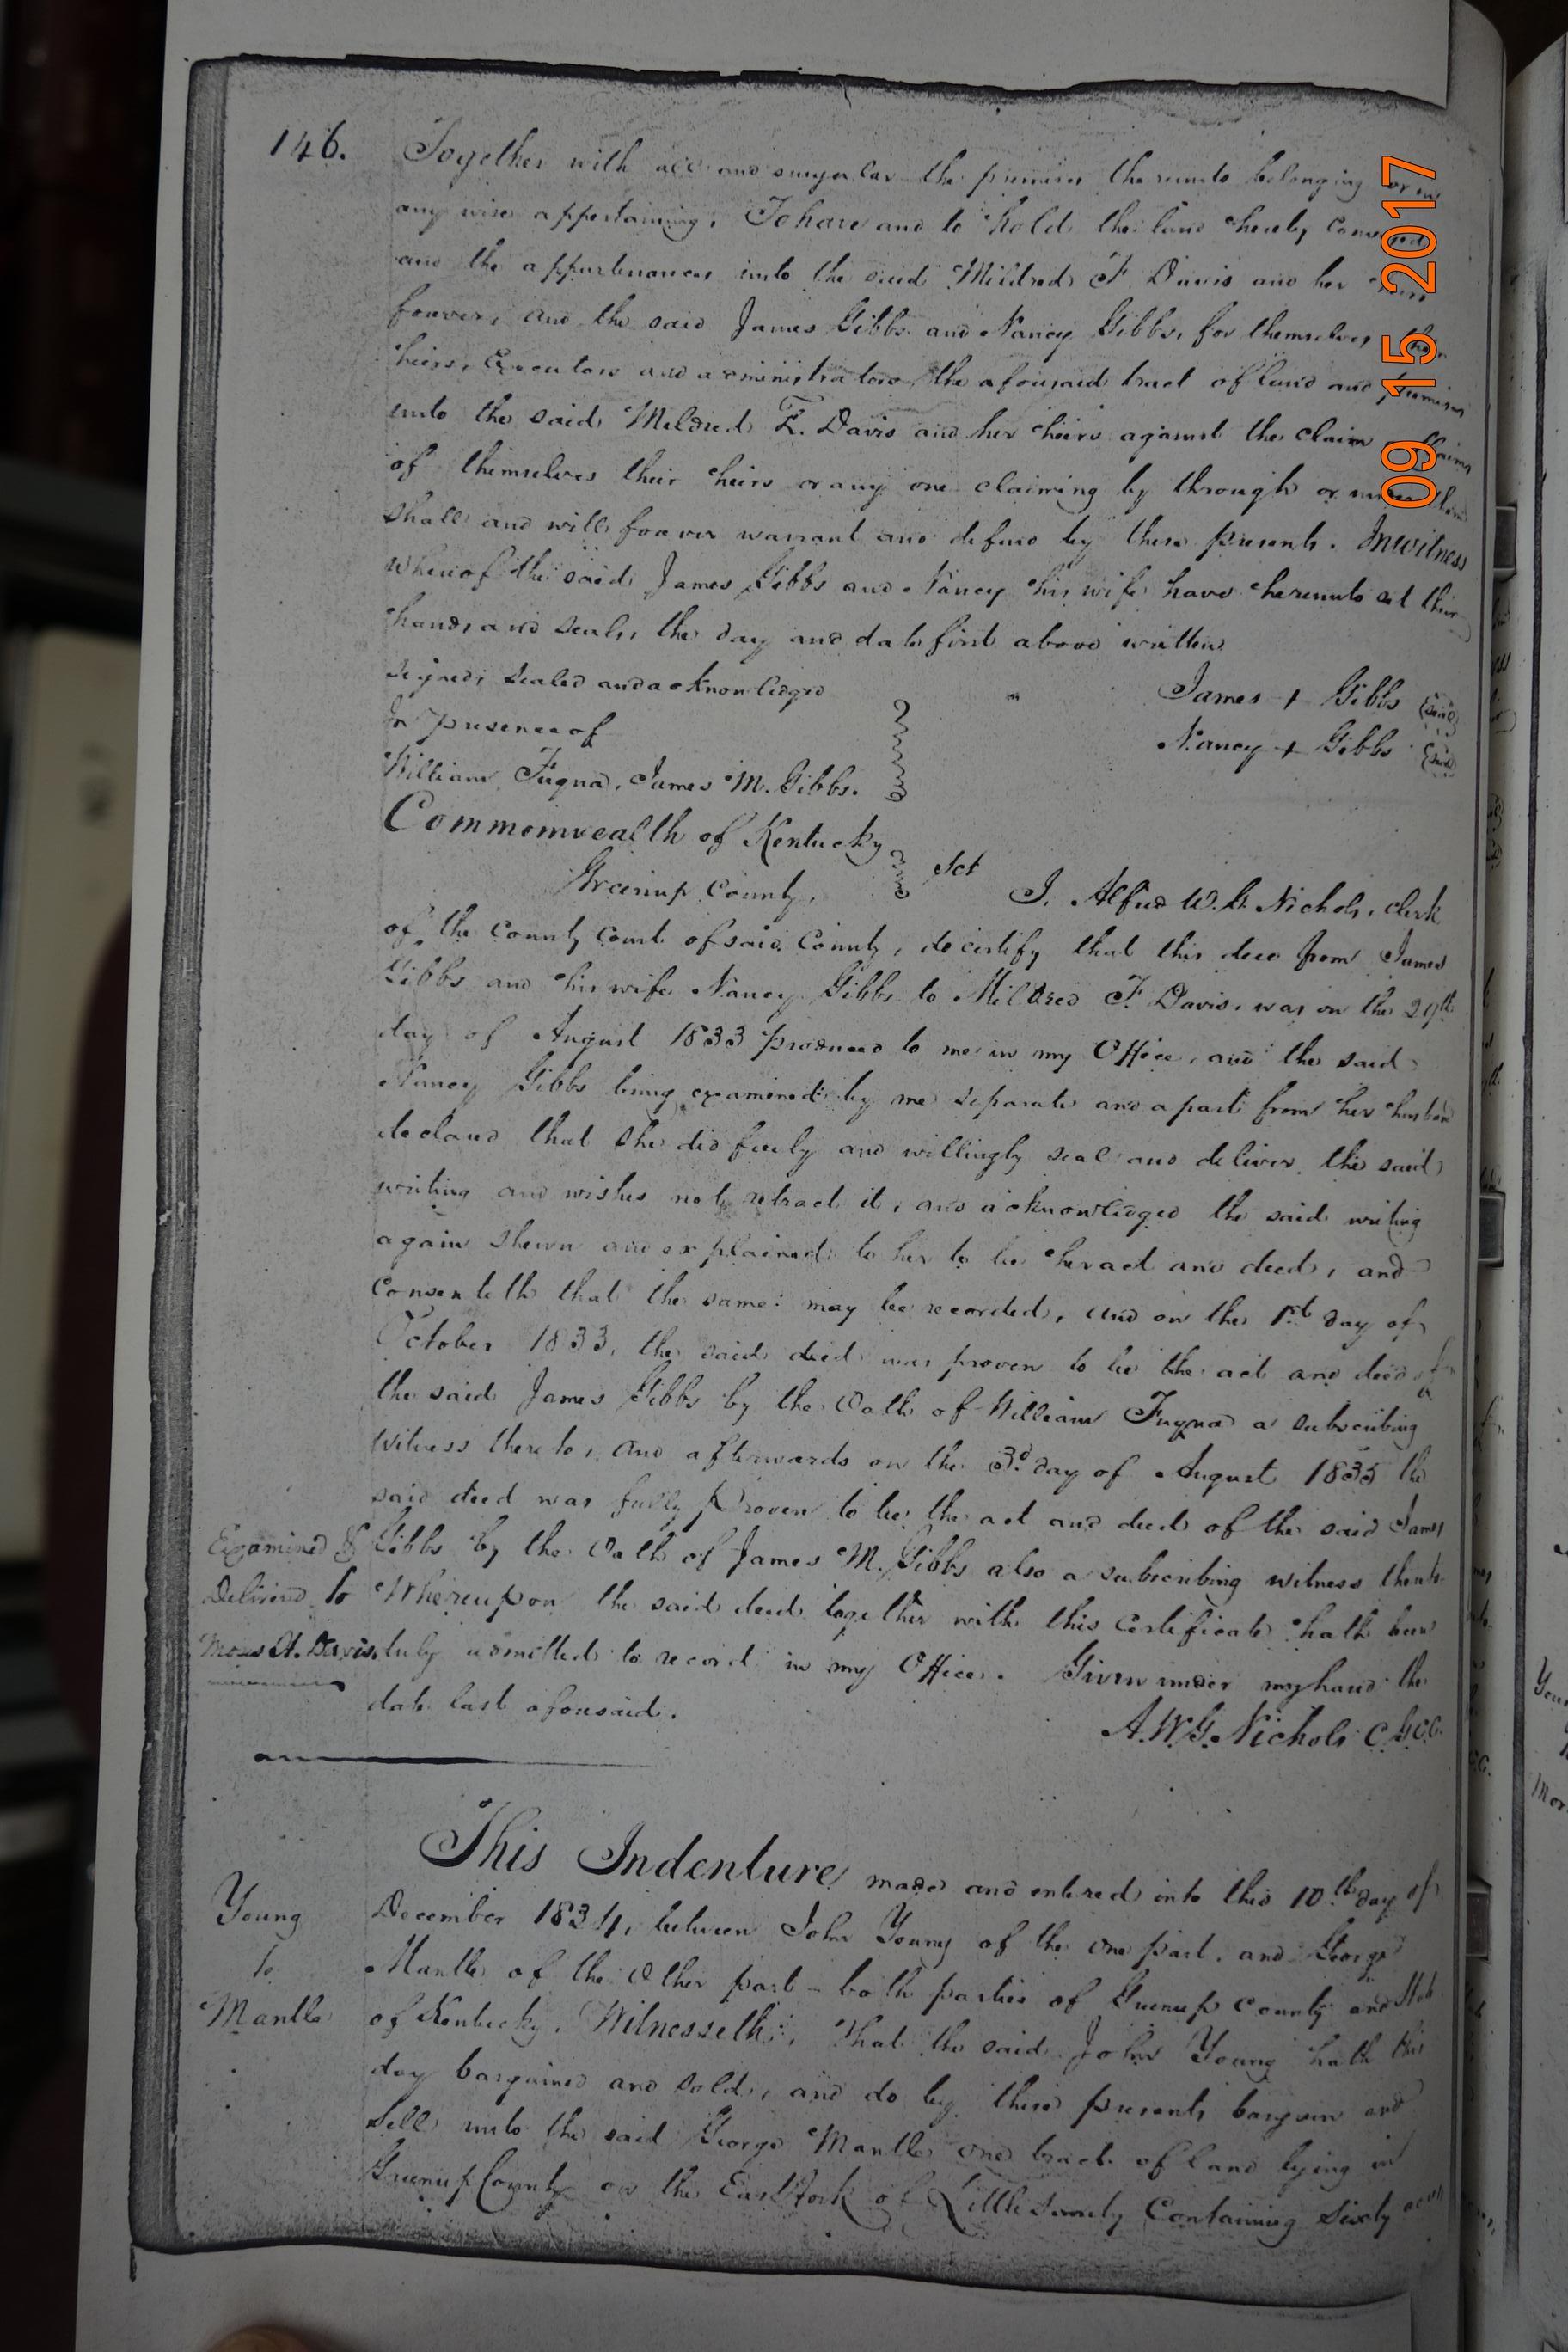 146.
Together with all and singular the premises thereunto belonging or in
any wise appertaining. To have and to hold the land hereby conveyed
and the appurtenances unto the said Mildred F. Davis and her heirs
forever, and the said James Gibbs and Nancy Gibbs, for themselves their
heirs, Executors and administrators the aforesaid tract of land and premises
unto the said Mildred F. Davis and her heirs against the claim claims
of themselves their heirs or any one claiming by through or under them
shall and will forever warrant and defend by these presents. In witness
whereof the said James Gibbs and Nancy his wife have hereunto set their
hands and seals, the day and date first above written
signed, sealed and acknowledged
In presence of
William Fuqua, James M. Gibbs.
James + Gibbs (seal)
Nancy + Gibbs (seal)
Commonwealth of Kentucky
Greenup County, Sct I. Alfred W. G. Nichols, clerk
of the County Court of said County, do certify that this deed from James
Gibbs and his wife Nancy Gibbs to Mildred F. Davis, was on the 29th
day of August 1833 produced to me in my Office, and the said
Nancy Gibbs being examined by me separate and apart from her husband
declared that she did freely and willingly seal and deliver the said
writing and wishes not retract it, and acknowledged the said writing
again shewn and explained to her to be her act and deed, and
consenteth that the same may be recorded, and on the 1st day of
October 1833, the said deed was proven to be the act and deed of
the said James Gibbs by the Oath of William Fuqua a subscribing
witness thereto, and afterwards on the 3d day of August 1835 the
said deed was fully proven to be the act and deed of the said James
Gibbs by the Oath of James M. Gibbs also a subscribing witness thereto
Whereupon the said deed together with this certificate hath been
duly admitted to record in my Office. Given under my hand the
date last aforesaid.
A. W. G. Nichols C.G.C.C.
Examined &
Delivered to
A. Davis
This Indenture made and entered into this 10th day of
December 1834, between John Young of the one part, and George
Mantle of the Other part - both parties of Greenup County and State
of Kentucky, Witnesseth, That the said John Young hath this
day bargained and sold, and do by these presents bargain and
sell unto the said George Mantle one tract of land lying in
Greenup County on the East fork of Little Sandy Containing Sixty acres
Young
to
Mantle
09 15 2017